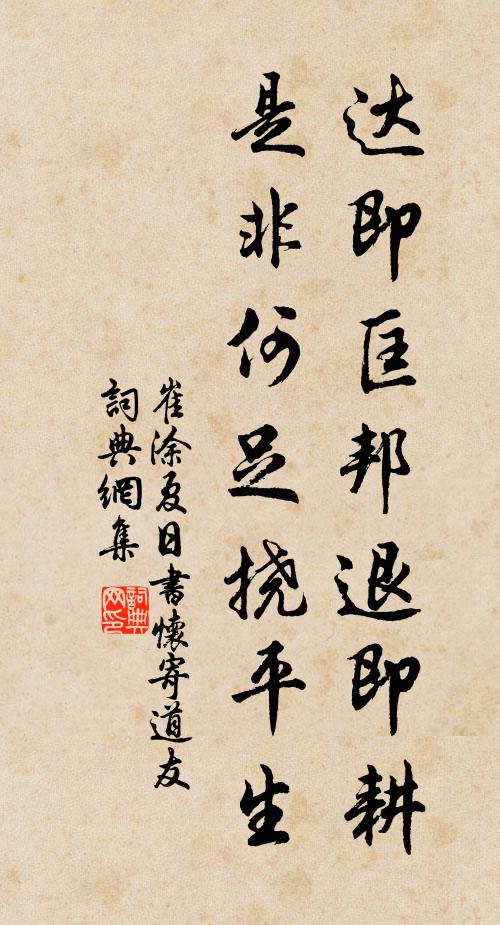 达即匡邦退即耕
是非何足挠平生
崔涂夏日書懷寄道友
詞典網集
詞典
网印